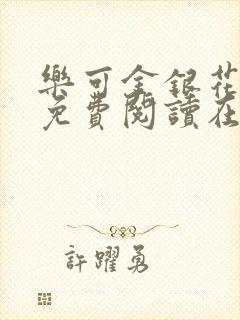 樂可金銀花
免費閱讀在
許躍勇